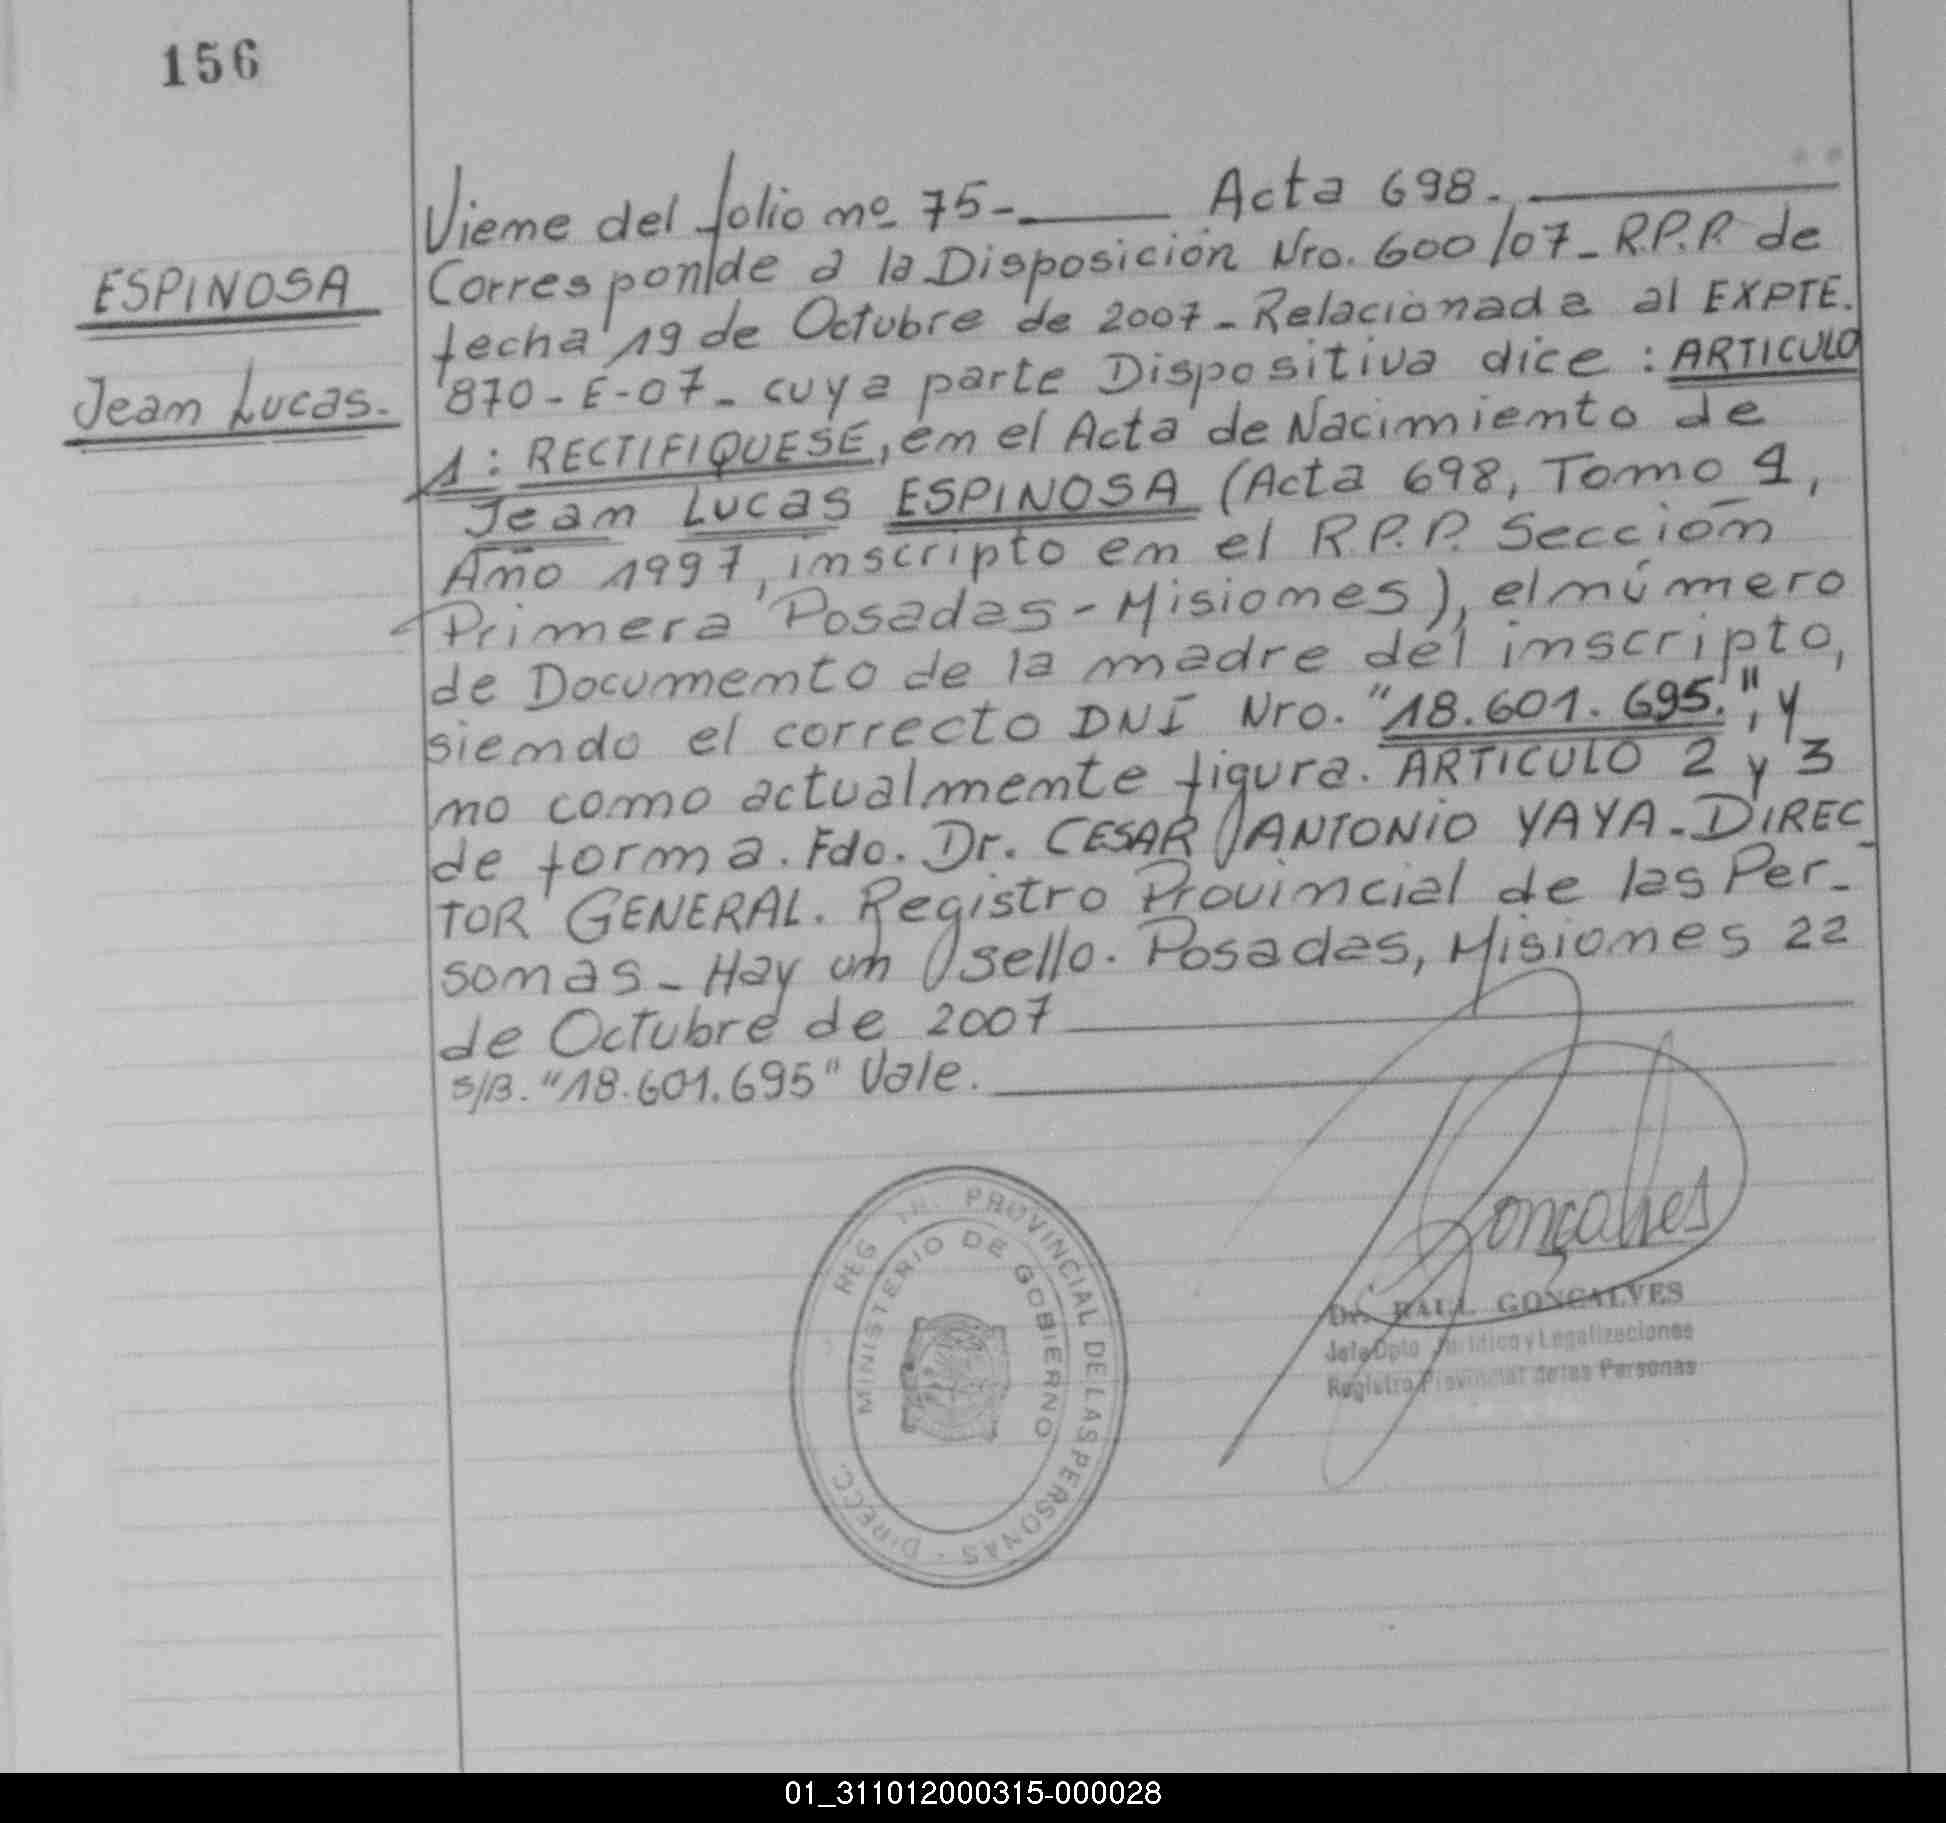 156
ESPINOSA
Jean Lucas.-
Viene del folio nº 75-. Acta 698.
Corresponde a la Disposición Nro. 600/07- R.P.P. de
fecha 19 de Octubre de 2007- Relacionada al EXPTE.
870-E-07- cuya parte Dispositiva dice: ARTICULO
1: RECTIFIQUESE, en el Acta de Nacimiento de
Jean Lucas ESPINOSA (Acta 698, Tomo 1,
Año 1997, inscripto en el R.P.P. Sección
Primera Posadas-Misiones), el número
de Documento de la madre del inscripto,
siendo el correcto DNI Nro. "18.601.695.", y
no como actualmente figura. ARTICULO 2 y 3
de forma. Fdo. Dr. CESAR ANTONIO YAYA-DIREC-
TOR GENERAL. Registro Provincial de las Per-
sonas- Hay un sello. Posadas, Misiones 22
de Octubre de 2007
S/B. "18.601.695" Vale.
DIRECC. REG PROVINCIAL DE LAS PERSONAS -
MINISTERIO DE GOBIERNO
Gonçalves
Dr. RAUL GONÇALVES
Jefe Dpto Jurídico y Legalizaciones
Registro Provincial de las Personas
01_311012000315-000028